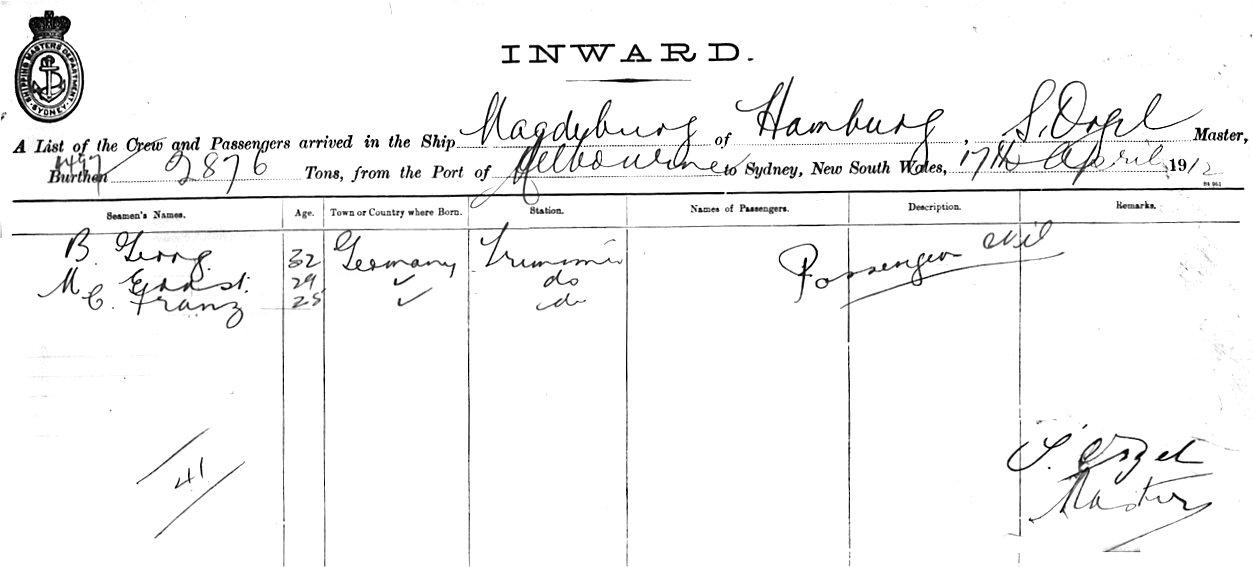 SHIPPING MASTERS DEPARTMENT SYDNEY
INWARD.
A List of the Crew and Passengers arrived in the Ship Magdeburg of Hamburg, Master,
Burthen 2876 Tons, from the Port of Melbourne to Sydney, New South Wales, 17th April 1912
Seamen's Names. Age. Town or Country where Born. Station. Names of Passengers. Description. Remarks.
B. Georg. 32 Germany Trimmer Passengers Nil
M. Ernst. 29 ✓ do
C. Franz 25 ✓ do
41
Master